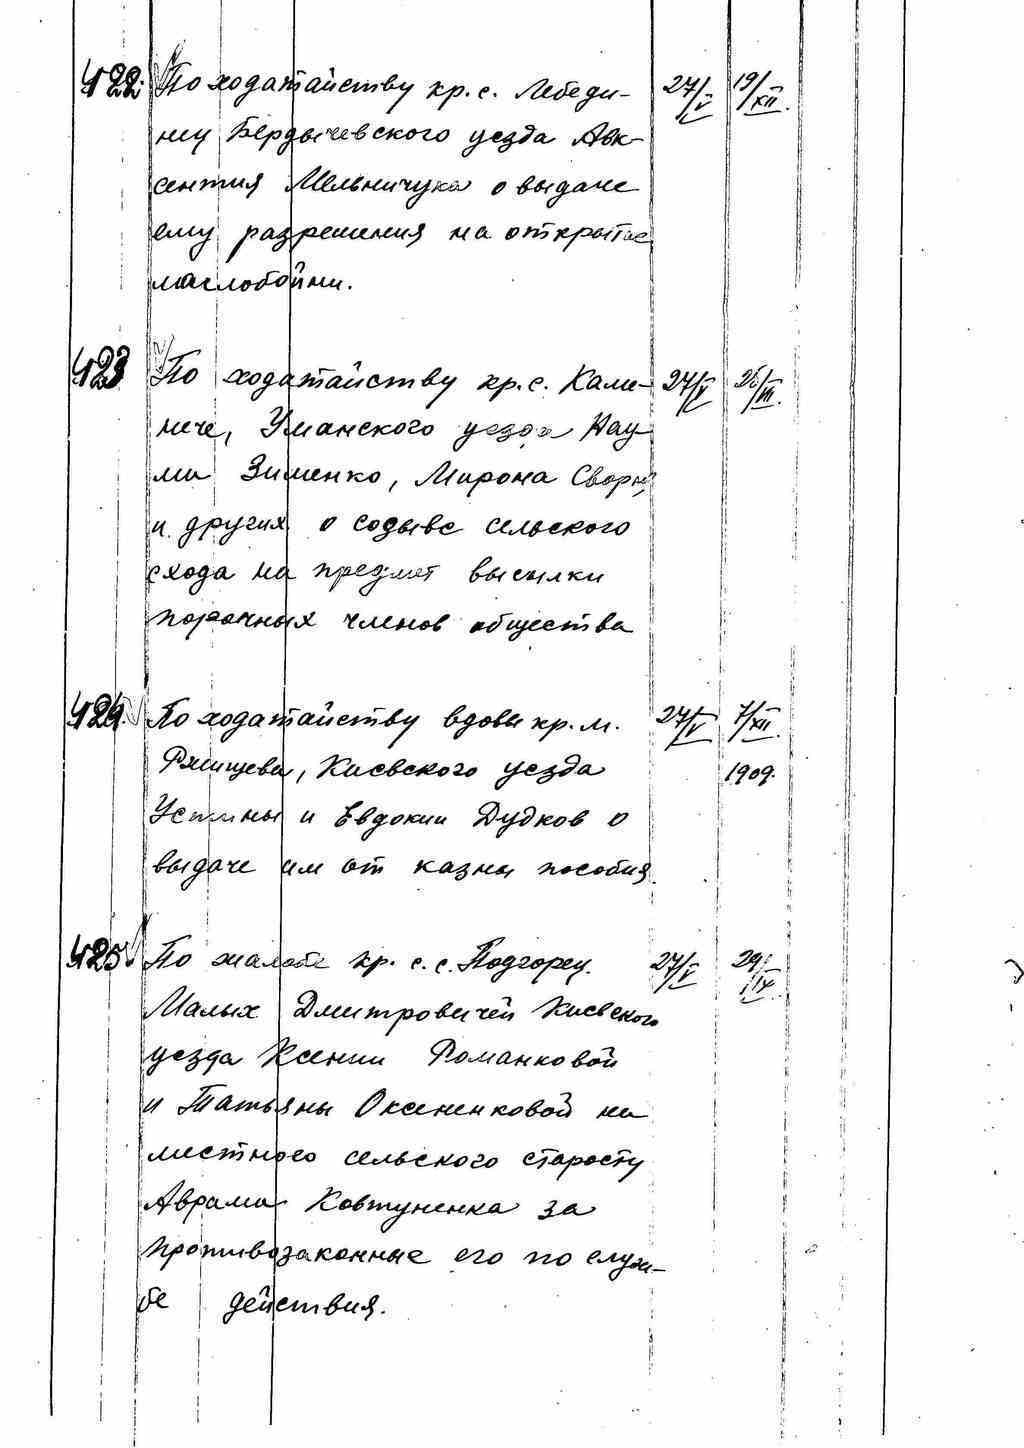 422. По ходатайству кр. с. Лебеди- 27/V 19/XII.
ну Бердычевского уезда Авк-
сентия Мельничука о выдаче
ему разрешения на открытие
маслобойни.
423 По ходатайству кр. с. Кали- 27/V
ниче, Уманского уезда Нау-
ма Зименко, Мирона
и других о созыве сельского
схода на предмет высылки
порочных членов общества
424. По ходатайству вдовы кр. м. 27/V 7/XII.
Ржищева, Киевского уезда 1909.
Устины и Евдокии Дудков о
выдаче им от казны пособия.
425 По жалобе кр. с. с. Подгорец. 27/V 29/IX.
Малых Дмитровичей Киевского
уезда Ксении Романковой
и Татьяны Оксененковой на
местного сельского старосту
Аврама Ковтуненка за
противозаконные его по служ-
бе действия.